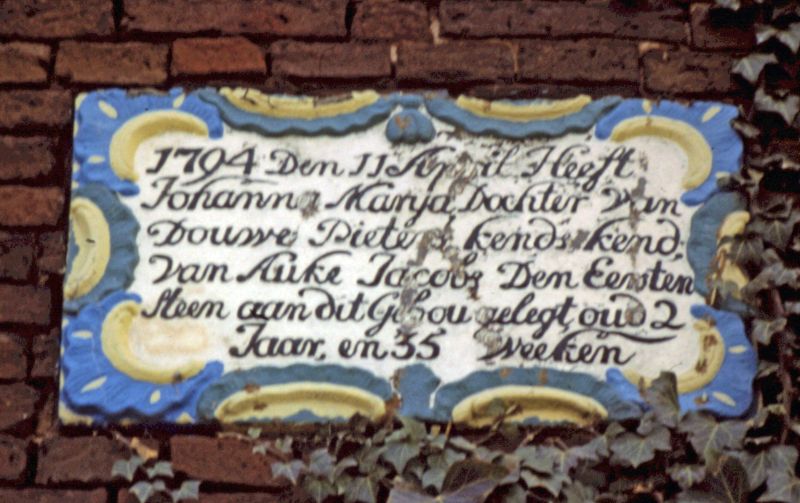 1794 Den 11 April Heeft
Johanna Marya Dochter Van
Douwe Pieters kends kend,
van Auke Jacobs Den Eersten
steen aan dit Gebou gelegt, oud 2
Jaar, en 35 Weeken